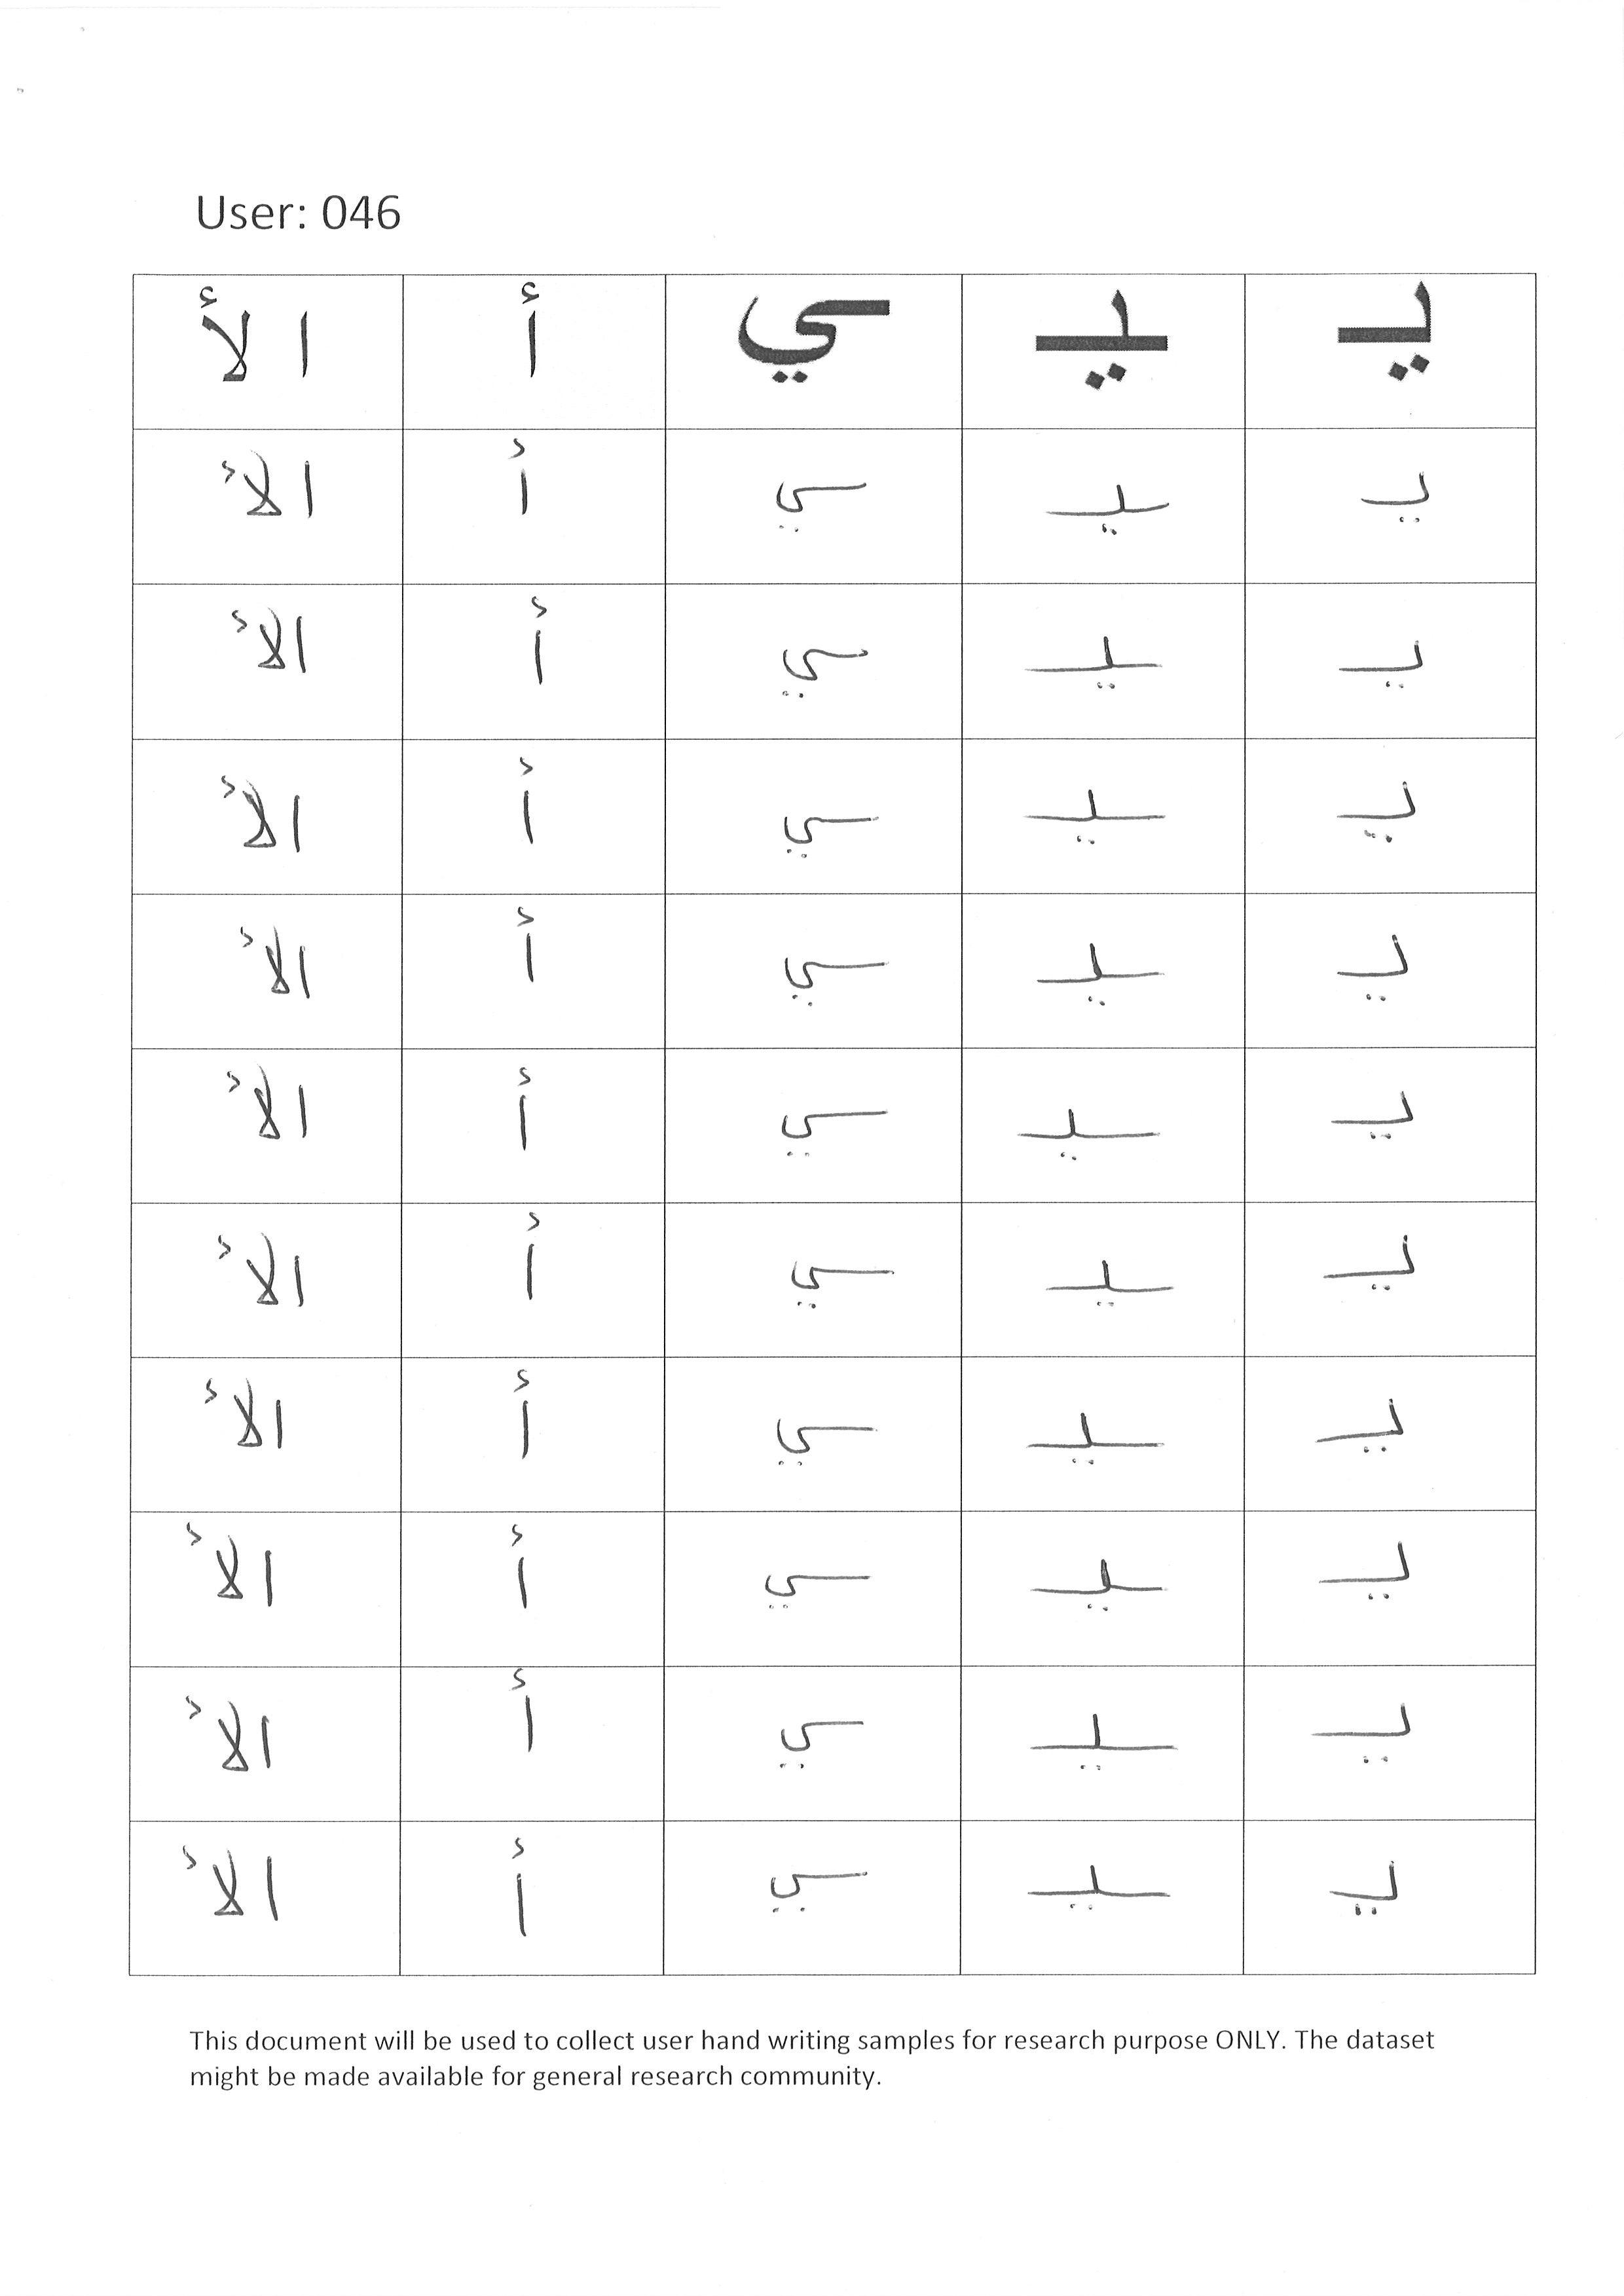 User: 046
يـ ـيـ ـي أ الأ
يـ ـيـ ـي أ الأ
يـ ـيـ ـي أ الأ
يـ ـيـ ـي أ الأ
يـ ـيـ ـي أ الأ
يـ ـيـ ـي أ الأ
يـ ـيـ ـي أ الأ
يـ ـيـ ـي أ الأ
يـ ـيـ ـي أ الأ
يـ ـيـ ـي أ الأ
يـ ـيـ ـي أ الأ
This document will be used to collect user hand writing samples for research purpose ONLY. The dataset
might be made available for general research community.